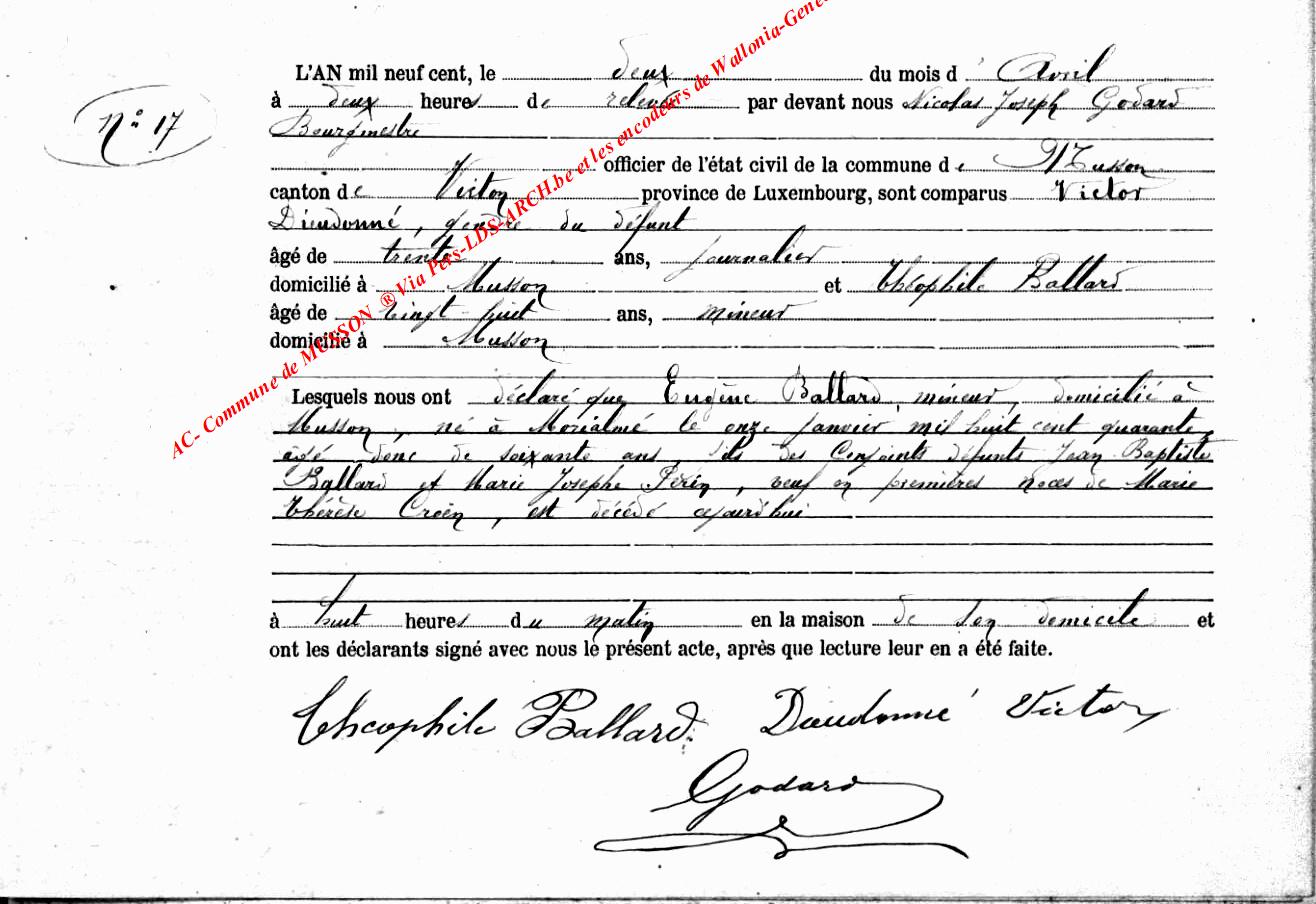 L'AN mil neuf cent, le deux du mois d'Avril
à deux heures de relevée par devant nous Nicolas Joseph Godard
N° 17
Bourgmestre
officier de l'état civil de la commune de Musson
canton de Virton province de Luxembourg, sont comparus Victor
Dieudonné, gendre du défunt
âgé de trente ans, journalier
domicilié à Musson et Théophile Ballard
âgé de vingt-huit ans, mineur
domicilié à Musson
Lesquels nous ont déclaré que Eugène Ballard, mineur, domicilié à
Musson, né à Morialmé le onze janvier mil huit cent quarante,
âgé donc de soixante ans, fils des Conjoints défunts Jean Baptiste
Ballard et Marie Josephe Périn, veuf en premières noces de Marie
Thérèse Creën, est décédé aujourd'hui
à huit heures du matin en la maison de son domicile et
ont les déclarants signé avec nous le présent acte, après que lecture leur en a été faite.
Théophile Ballard. Dieudonné Victor
Godard
AC- Commune de MUSSON ® Via Pers-LDS-ARCH.be et les encodeurs de Wallonia-Gene